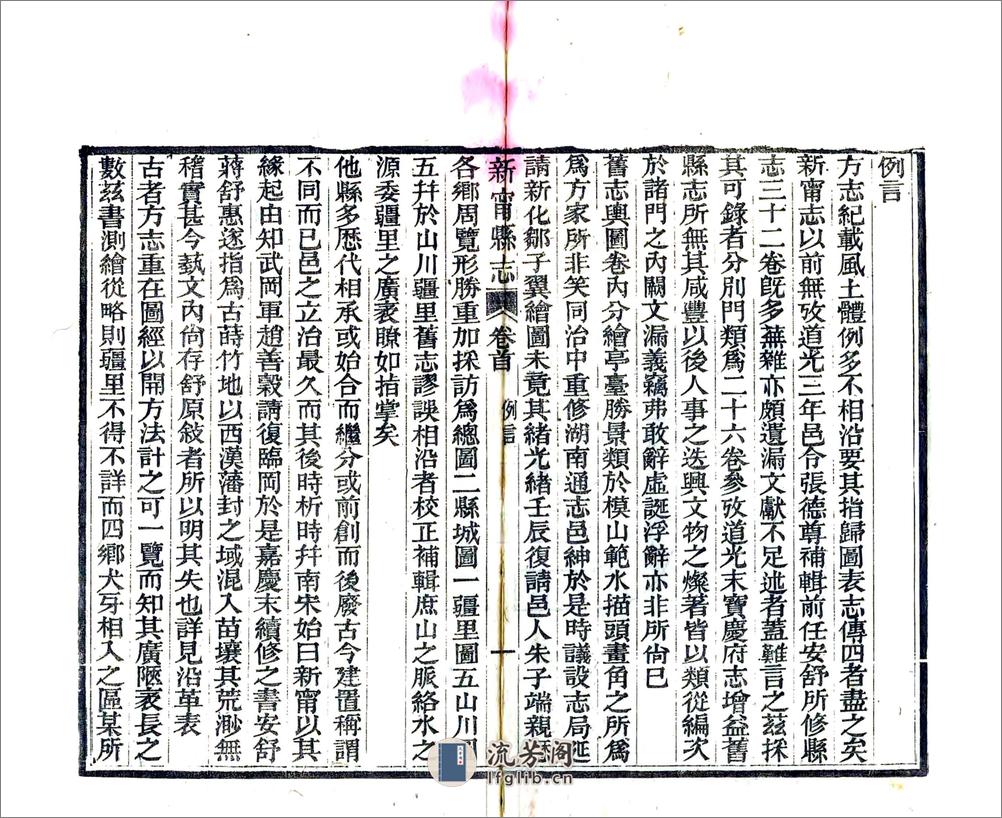 例言
方志紀載風土體例多不相沿要其指歸圖表志傳四者盡之矣
新甯志以前無攷道光三年邑令張德尊補輯前任安舒所修縣
志三十二卷旣多蕪雜亦頗遺漏文獻不足述者蓋難言之茲採
其可錄者分別門類爲二十六卷參攷道光末寶慶府志增益舊
縣志所無其咸豐以後人事之迭興文物之燦著皆以類從編次
於諸門之內闕文漏義竊弗敢辭虛誕浮辭亦非所尙巳
舊志輿圖卷內分繪亭臺勝景類於模山範水描頭畫角之所爲
爲方家所非笑同治中重修湖南通志邑紳於是時議設志局延
請新化鄒子翼繪圖未竟其緒光緒壬辰復請邑人朱子端親
新甯縣志
卷首
例言
一
各鄉周覽形勝重加採訪爲總圖二縣城圖一疆里圖五山川
五幷於山川疆里舊志謬誤相沿者校正補輯庶山之脈絡水之
源委疆里之廣袤瞭如指掌矣
他縣多歷代相承或始合而繼分或前創而後廢古今建置稱謂
不同而已邑之立治最久而其後時析時幷南宋始曰新甯以其
緣起由知武岡軍趙善穀請復臨岡於是嘉慶末續修之書安舒
蔣舒惠遂指爲古蒔竹地以西漢藩封之域混入苗壤其荒渺無
稽實甚今藝文內尙存舒原敍者所以明其失也詳見沿革表
古者方志重在圖經以開方法計之可一覽而知其廣陿袤長之
數茲書測繪從略則疆里不得不詳而四鄉犬牙相入之區某所
流芳閣
lfglib.cn